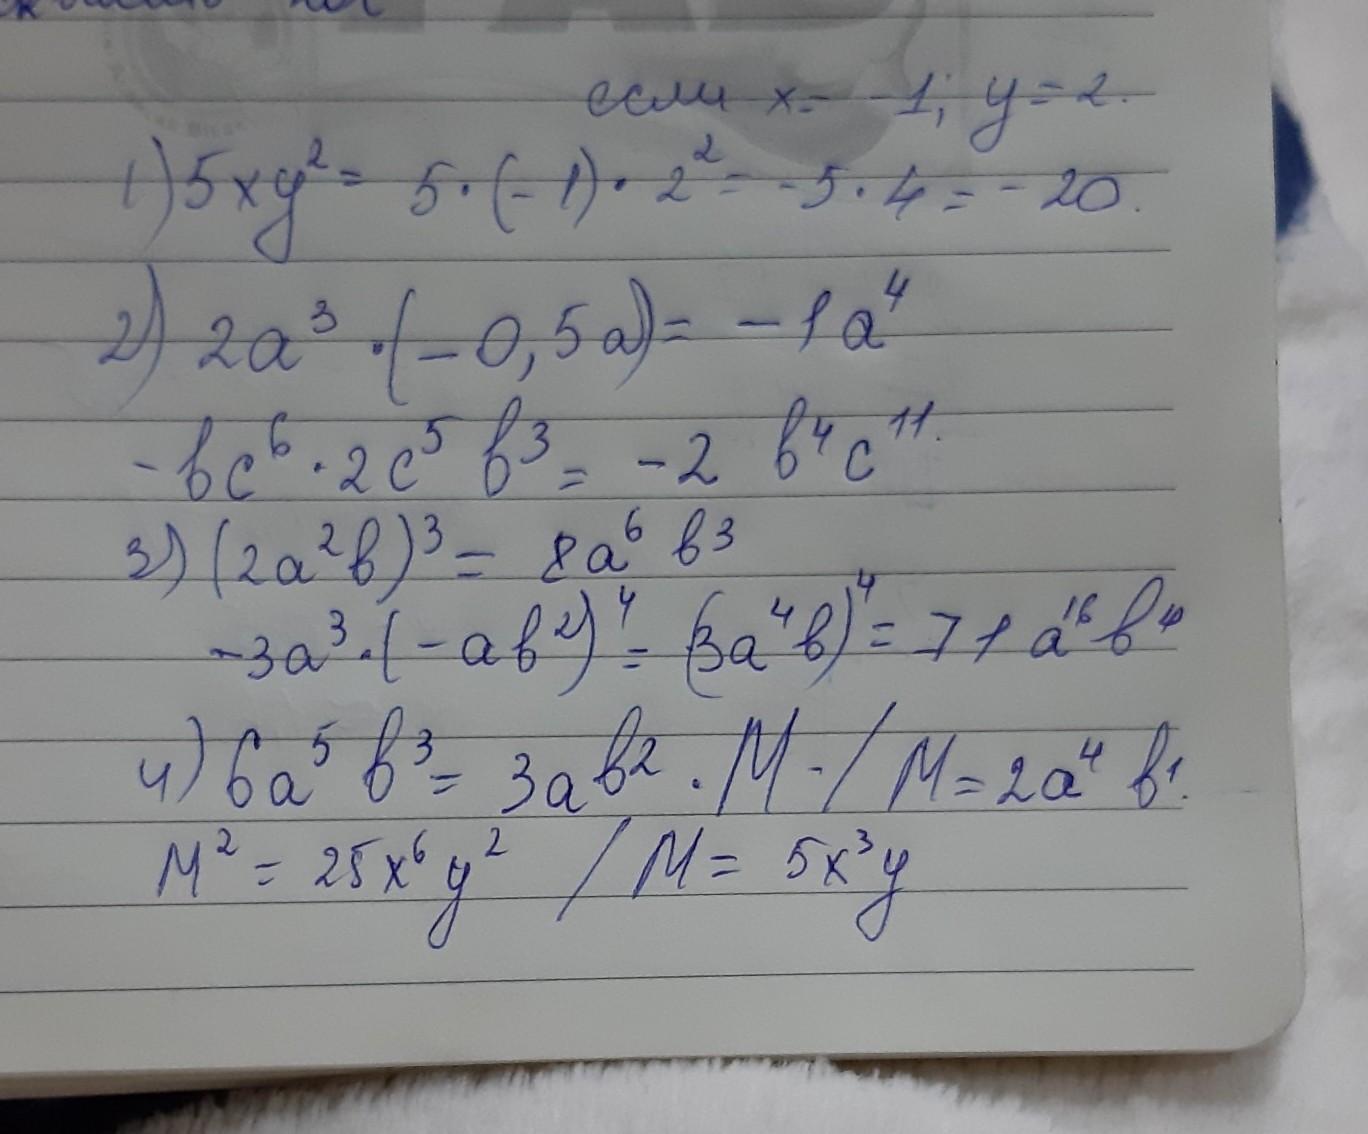 если x = -1; y = 2.
1) 5xy² = 5·(-1)·2² = -5·4 = -20.
2) 2a³·(-0,5a) = -1a⁴
-bc⁶·2c⁵b³ = -2 b⁴c¹¹.
3) (2a²b)³ = 8a⁶b³
-3a³·(-ab²)⁴ = (3a⁴b)⁴ = 71a¹⁶b⁴
4) 6a⁵b³ = 3ab²·M - / M = 2a⁴b¹.
M² = 25x⁶y² / M = 5x³y